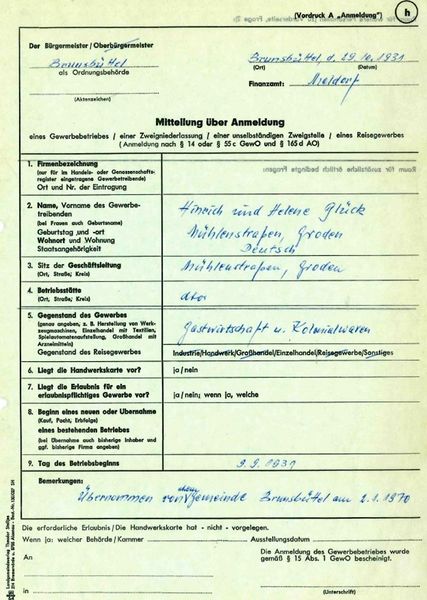 (Vordruck A „Anmeldung")
h
Der Bürgermeister / Oberbürgermeister
Brunsbüttel
als Ordnungsbehörde
(Aktenzeichen)
Brunsbüttel, d. 29.10.1931
(Ort) (Datum)
Finanzamt: Meldorf
Mitteilung über Anmeldung
eines Gewerbebetriebes / einer Zweigniederlassung / einer unselbständigen Zweigstelle / eines Reisegewerbes
(Anmeldung nach § 14 oder § 55c GewO und § 165 d AO)
1. Firmenbezeichnung
(nur für im Handels- oder Genossenschafts-
register eingetragene Gewerbetreibende)
Ort und Nr. der Eintragung
2. Name, Vorname des Gewerbe-
treibenden
(bei Frauen auch Geburtsname)
Geburtstag und -ort
Wohnort und Wohnung
Staatsangehörigkeit
Hinrich und Helene Glück
Mühlenstraßen, Groden
Deutsch
3. Sitz der Geschäftsleitung
(Ort, Straße; Kreis)
Mühlenstraßen, Groden
4. Betriebstätte
(Ort, Straße; Kreis)
dto.
5. Gegenstand des Gewerbes
(genau angeben, z. B. Herstellung von Werk-
zeugmaschinen, Einzelhandel mit Textilien,
Spielautomatenaufstellung, Großhandel mit
Arzneimitteln)
Gegenstand des Reisegewerbes
Gastwirtschaft u. Kolonialwaren
Industrie/Handwerk/Großhandel/Einzelhandel/Reisegewerbe/Sonstiges
6. Liegt die Handwerkskarte vor?
ja / nein
7. Liegt die Erlaubnis für ein
erlaubnispflichtiges Gewerbe vor?
ja / nein; wenn ja, welche
8. Beginn eines neuen oder Übernahme
(Kauf, Pacht, Erbfolge)
eines bestehenden Betriebes
(bei Übernahme auch bisherige Inhaber und
ggf. bisherige Firma angeben)
9. Tag des Betriebsbeginns
9.9.1931
Bemerkungen:
Übernommen von Gemeinde Brunsbüttel am 2.1.1970
Die erforderliche Erlaubnis / Die Handwerkskarte hat - nicht - vorgelegen.
Wenn ja: welcher Behörde / Kammer
Ausstellungsdatum
An
Die Anmeldung des Gewerbebetriebes wurde
gemäß § 15 Abs. 1 GewO bescheinigt.
in
(Unterschrift)